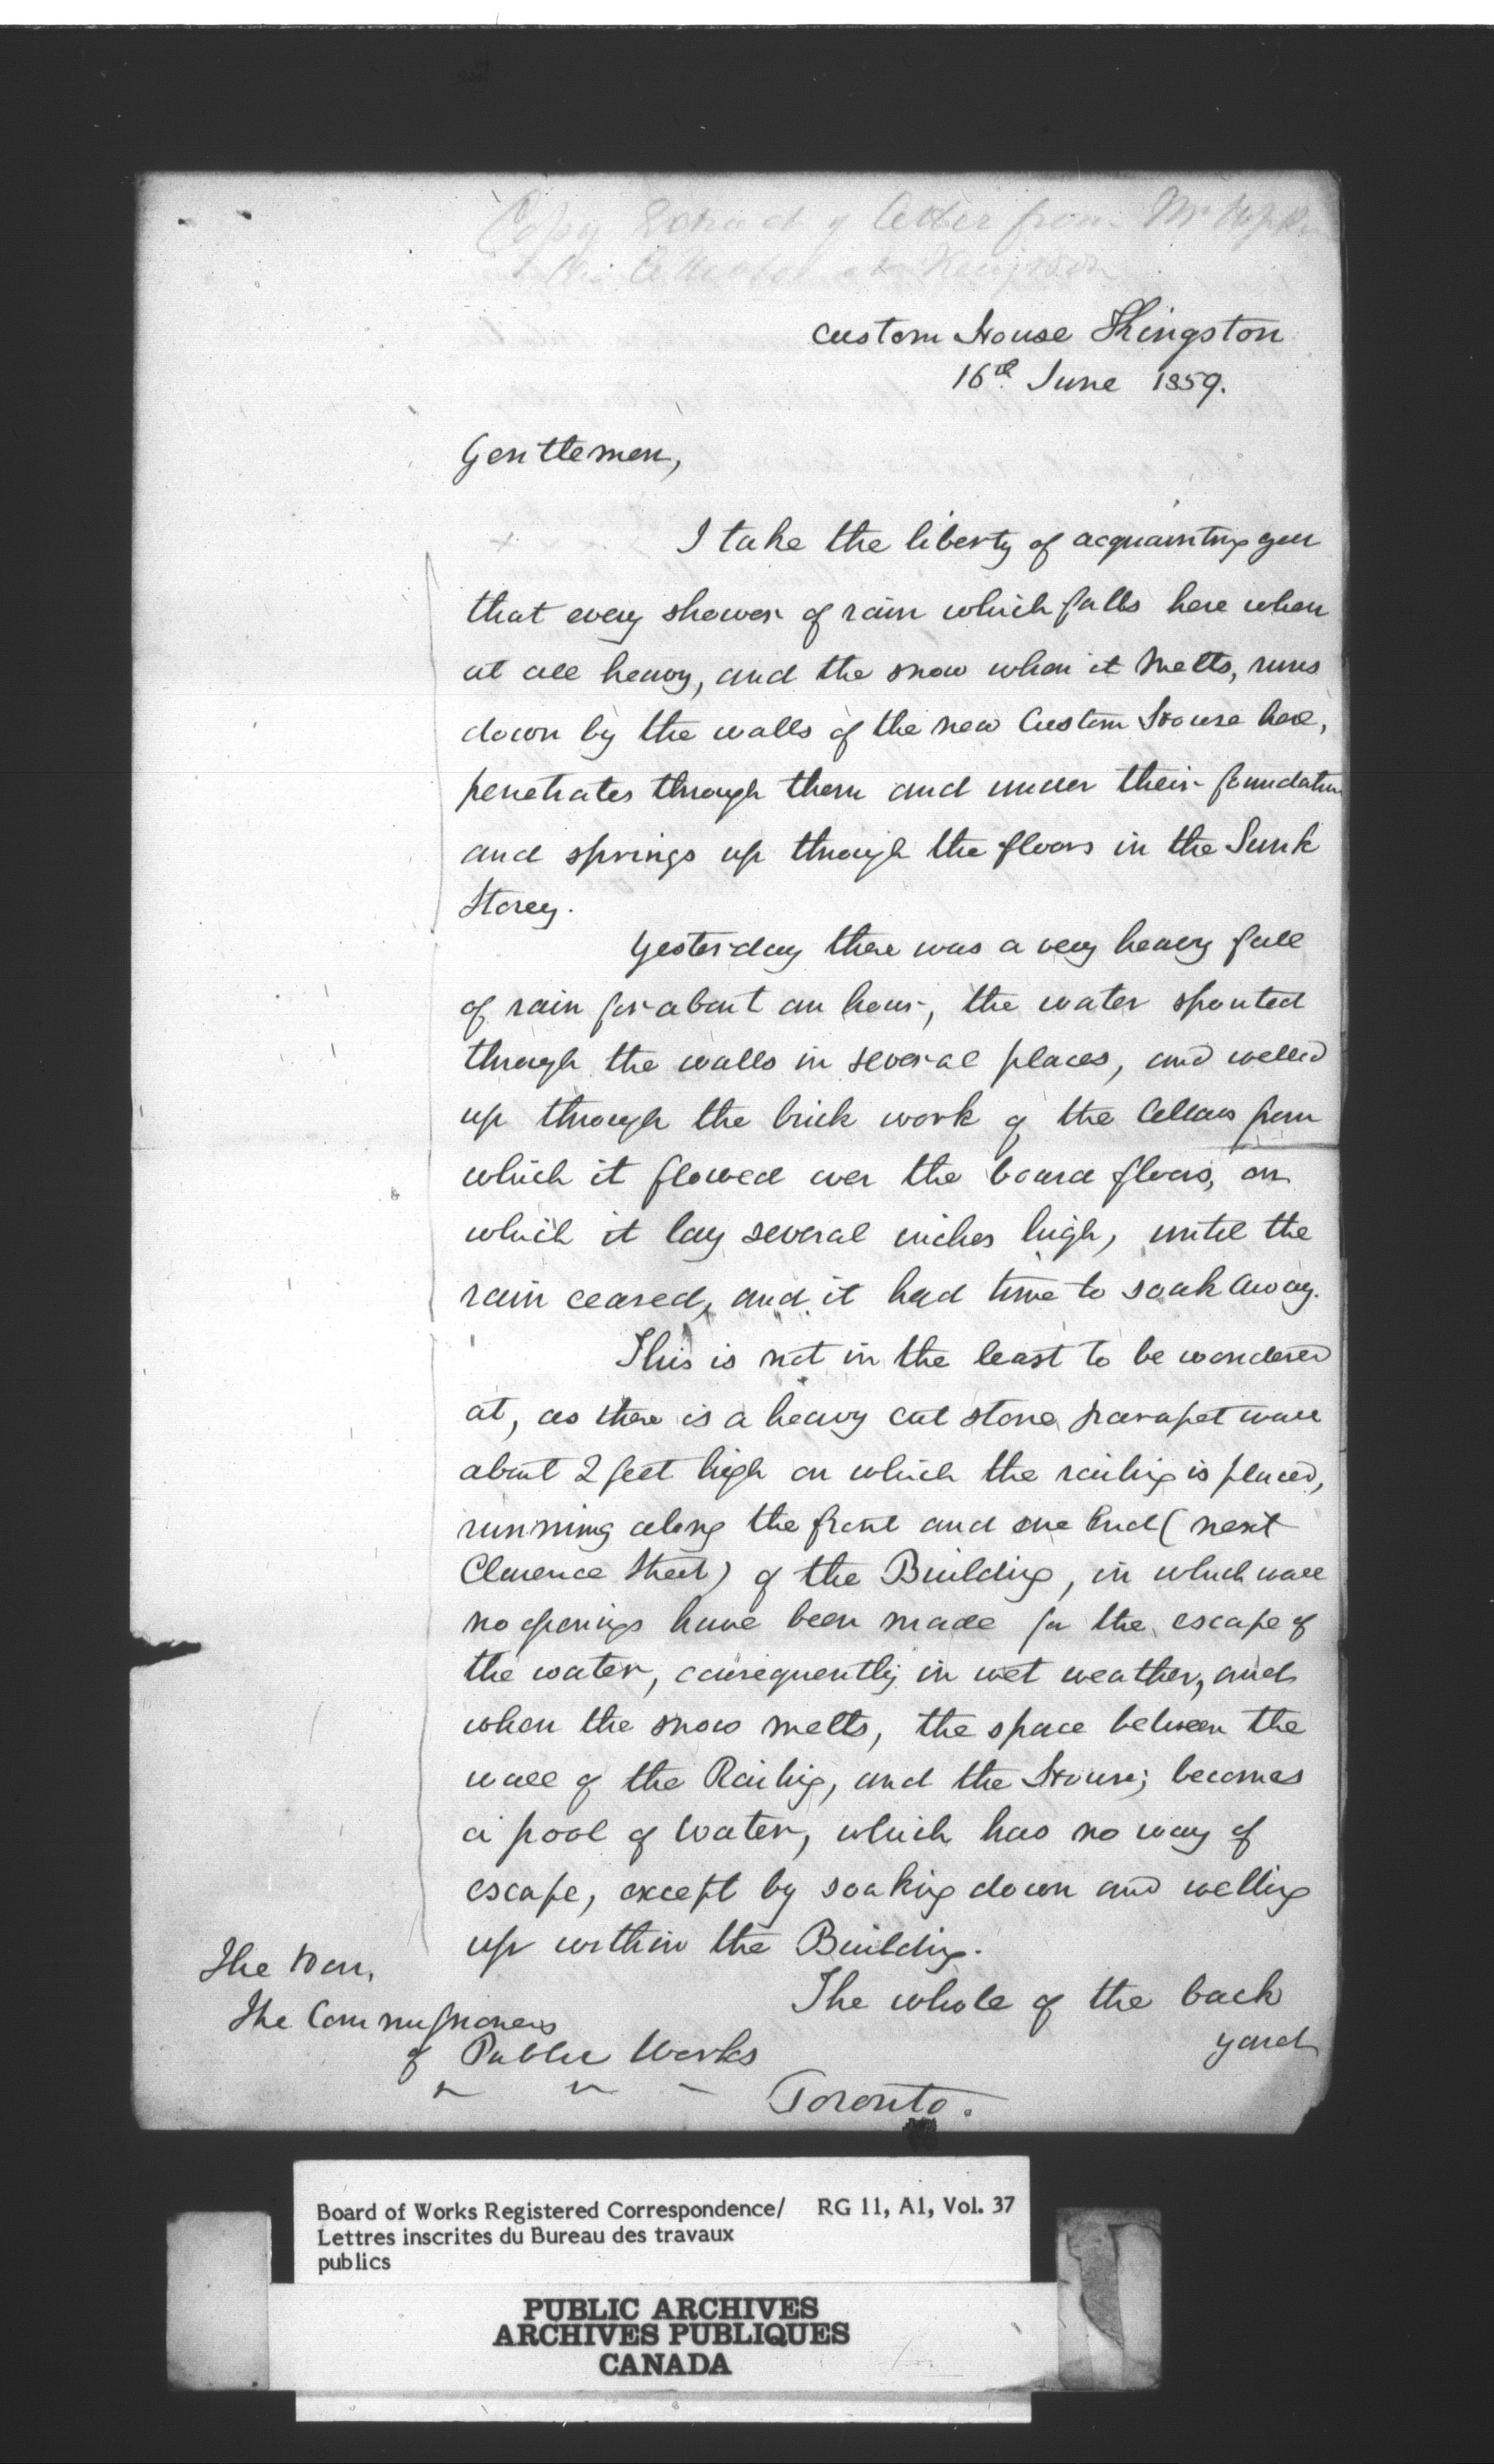 Copy Extract of letter from Mr
Custom House Kingston
16th June 1859.
Gentlemen,
I take the liberty of acquainting you
that every shower of rain which falls here when
at all heavy, and the snow when it melts, runs
down by the walls of the new Custom House here,
penetrates through them and under their foundation
and springs up through the floors in the Sunk
Storey.
Yesterday there was a very heavy fall
of rain for about an hour, the water spouted
through the walls in several places, and welled
up through the brick work of the Cellars from
which it flowed over the board floors, on
which it lay several inches high, until the
rain ceased, and it had time to soak away.
This is not in the least to be wondered
at, as there is a heavy cut stone parapet wall
about 2 feet high on which the railing is placed,
running along the front and one End (next
Clarence Street) of the Building, in which wall
no openings have been made for the escape of
the water, consequently in wet weather, and
when the snow melts, the space between the
wall of the Railing, and the House; becomes
a pool of water, which has no way of
escape, except by soaking down and welling
up within the Building.
The whole of the back
yard
The Hon.
The Commissioners
of Public Works
" " "
Toronto.
Board of Works Registered Correspondence/ RG 11, A1, Vol. 37
Lettres inscrites du Bureau des travaux
publics
PUBLIC ARCHIVES
ARCHIVES PUBLIQUES
CANADA